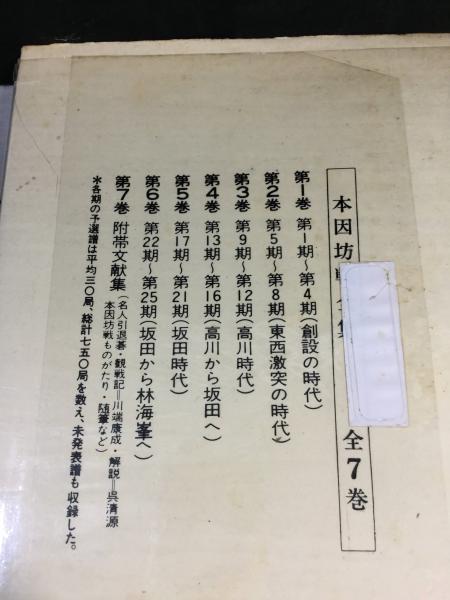 本因坊戦全集 全7巻
第1巻 第1期〜第4期(創設の時代)
第2巻 第5期〜第8期(東西激突の時代)
第3巻 第9期〜第12期(高川時代)
第4巻 第13期〜第16期(高川から坂田へ)
第5巻 第17期〜第21期(坂田時代)
第6巻 第22期〜第25期(坂田から林海峯へ)
第7巻 附帯文献集(名人引退碁・観戦記=川端康成・解説=呉清源
本因坊戦ものがたり・随筆など)
*各期の予選譜は平均三〇局、総計七五〇局を数え、未発表譜も収録した。